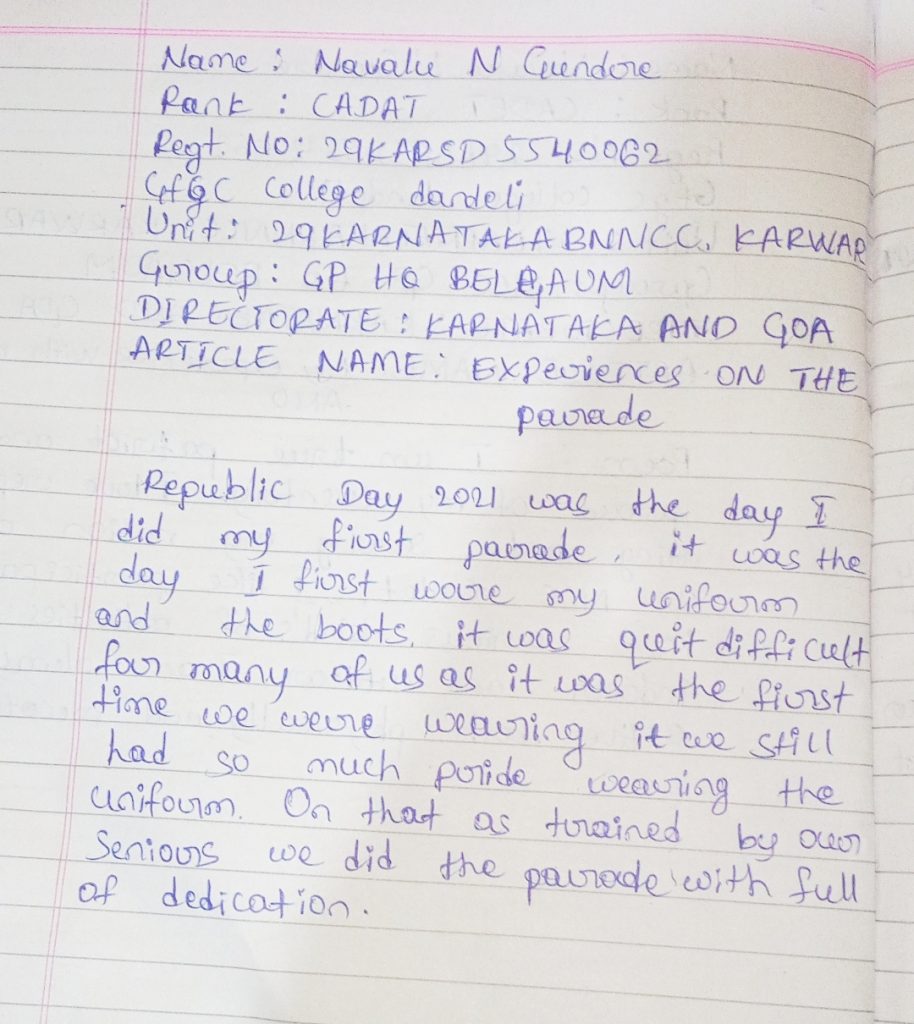 Name : Navalu N Gundore
Rank : CADAT
Regt. No: 29KARSD 5540062
GFGC College dandeli
Unit: 29KARNATAKA BNNCC. KARWAR
Group: GP HQ BELGAUM
DIRECTORATE : KARNATAKA AND GOA
ARTICLE NAME: EXPeriences ON THE
parade
Republic Day 2021 was the day I
did my first parade, it was the
day I first wore my uniform
and the boots, it was quit difficult
for many of us as it was the first
time we were wearing it we still
had so much pride wearing the
uniform. On that as trained by our
Seniors we did the parade with full
of dedication.